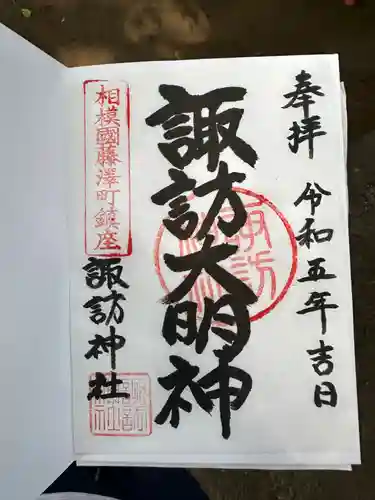 奉拝
令和五年吉日
諏訪大明神
相模國藤澤町鎮座
諏訪神社